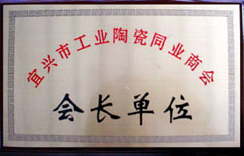 宜兴市工业陶瓷同业商会
会长单位